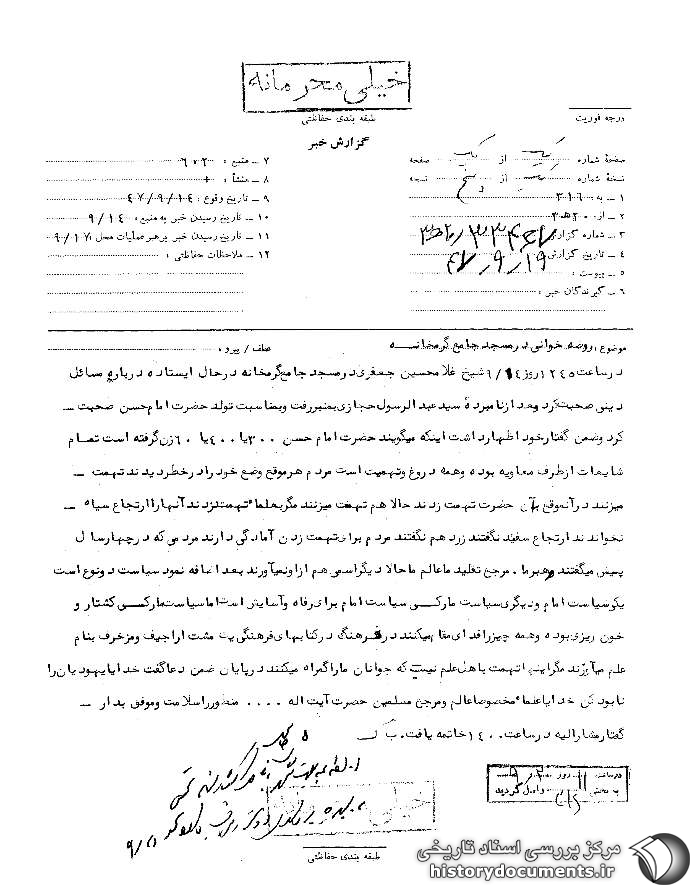 خیلی محرمانه
طبقه بندی حفاظتی
درجه فوریت
گزارش خبر
صفحهٔ شماره یک از یک صفحه
نسخهٔ شماره از پنج نسخه
۱ ـ به: ۳۱۶
۲ ـ از: ۳۰ هـ ۳
۳ ـ شماره گزارش
۴ ـ تاریخ گزارش ۱۹ ر ۹ ر ۴۷
۵ ـ پیوست:
۶ ـ گیرندگان خبر:
۷ ـ منبع: ۶۰۲
۸ ـ منشأ:
۹ ـ تاریخ وقوع: ۴۷/۹/۱۴
۱۰ ـ تاریخ رسیدن خبر به منبع: ۹/۱۴
۱۱ ـ تاریخ رسیدن خبر برهبر عملیات محل: ۹/۱۷
۱۲ ـ ملاحظات حفاظتی:
موضوع: روضه خوانی در مسجد جامع گرمخانه
عطف / پیرو:
در ساعت ۱۲۴۵ روز ۹/۱۴ شیخ غلامحسین جعفری در مسجد جامع گرمخانه در حال ایستاده درباره مسائل
دینی صحبت کرد بعد از نامبرده سید عبدالرسول حجازی بمنبر رفت و بمناسبت تولد حضرت امام حسن صحبت ـ
کرد و ضمن گفتار خود اظهار داشت اینکه میگویند حضرت امام حسن ۳۰۰ یا ۴۰۰ یا ۶۰۰ زن گرفته است تمام
شایعات از طرف معاویه بوده و همه دروغ و تهمیت است مردم هر موقع وضع خود را در خطر دیدند تهمت ـ
میزنند در آنموقع بآن حضرت تهمت زدند حالا هم تهمت میزنند مگر بعلماء تهمت نزدند آنها را ارتجاع سیاه ـ
نخواندند ارتجاع سفید نگفتند زرد هم نگفتند مردم برای تهمت زدن آمادگی دارند مردمی که در چهار سال
پیش میگفتند رهبر ما، مرجع تقلید ما عالم ما حالا دیگر اسمی هم از او نمیآورند بعد اضافه نمود سیاست دو نوع است
یکی سیاست امام و دیگری سیاست مارکسی سیاست امام برای رفاه و آسایش است اما سیاست مارکسی کشتار و
خون ریزی بوده و همه چیز را فدای مقام میکنند در فرهنگ در کتابهای فرهنگی یک مشت اراجیف و مزخرف بنام
علم میآورند مگر اینها تهمت باهل علم نیست که جوانان ما را گمراه میکنند در پایان ضمن دعا گفت خدایا یهودیان را
نابود کن خدایا علماء مخصوصا عالم و مرجع مسلمین حضرت آیت اله .... منظور را سلامت و موفق بدار ـ
گفتار مشارالیه در ساعت ۱۴۰۰ خاتمه یافت.
در ساعت روز
به بخش واصل گردید
خیلی
طبقه بندی حفاظتی
مرکز بررسی اسناد تاریخی
historydocuments.ir